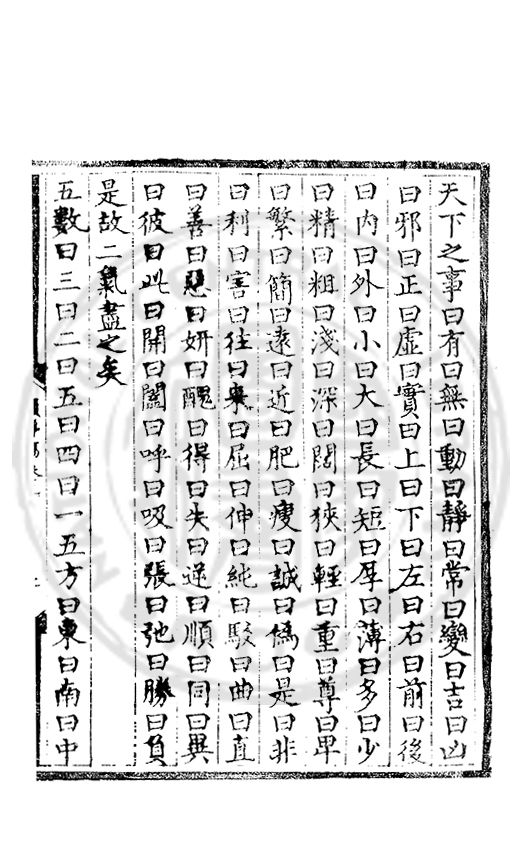 天下之事曰有曰無曰動曰靜曰常曰變曰吉曰凶
曰邪曰正曰虛曰實曰上曰下曰左曰右曰前曰後
曰內曰外曰小曰大曰長曰短曰厚曰薄曰多曰少
曰精曰粗曰淺曰深曰闊曰狹曰輕曰重曰尊曰卑
曰繁曰簡曰遠曰近曰肥曰瘦曰誠曰僞曰是曰非
曰利曰害曰往曰來曰屈曰伸曰純曰駁曰曲曰直
曰善曰惡曰妍曰醜曰得曰失曰逆曰順曰同曰異
曰彼曰此曰開曰闔曰呼曰吸曰張曰弛曰勝曰負
是故二氣盡之矣
五數曰三曰二曰五曰四曰一五方曰東曰南曰中